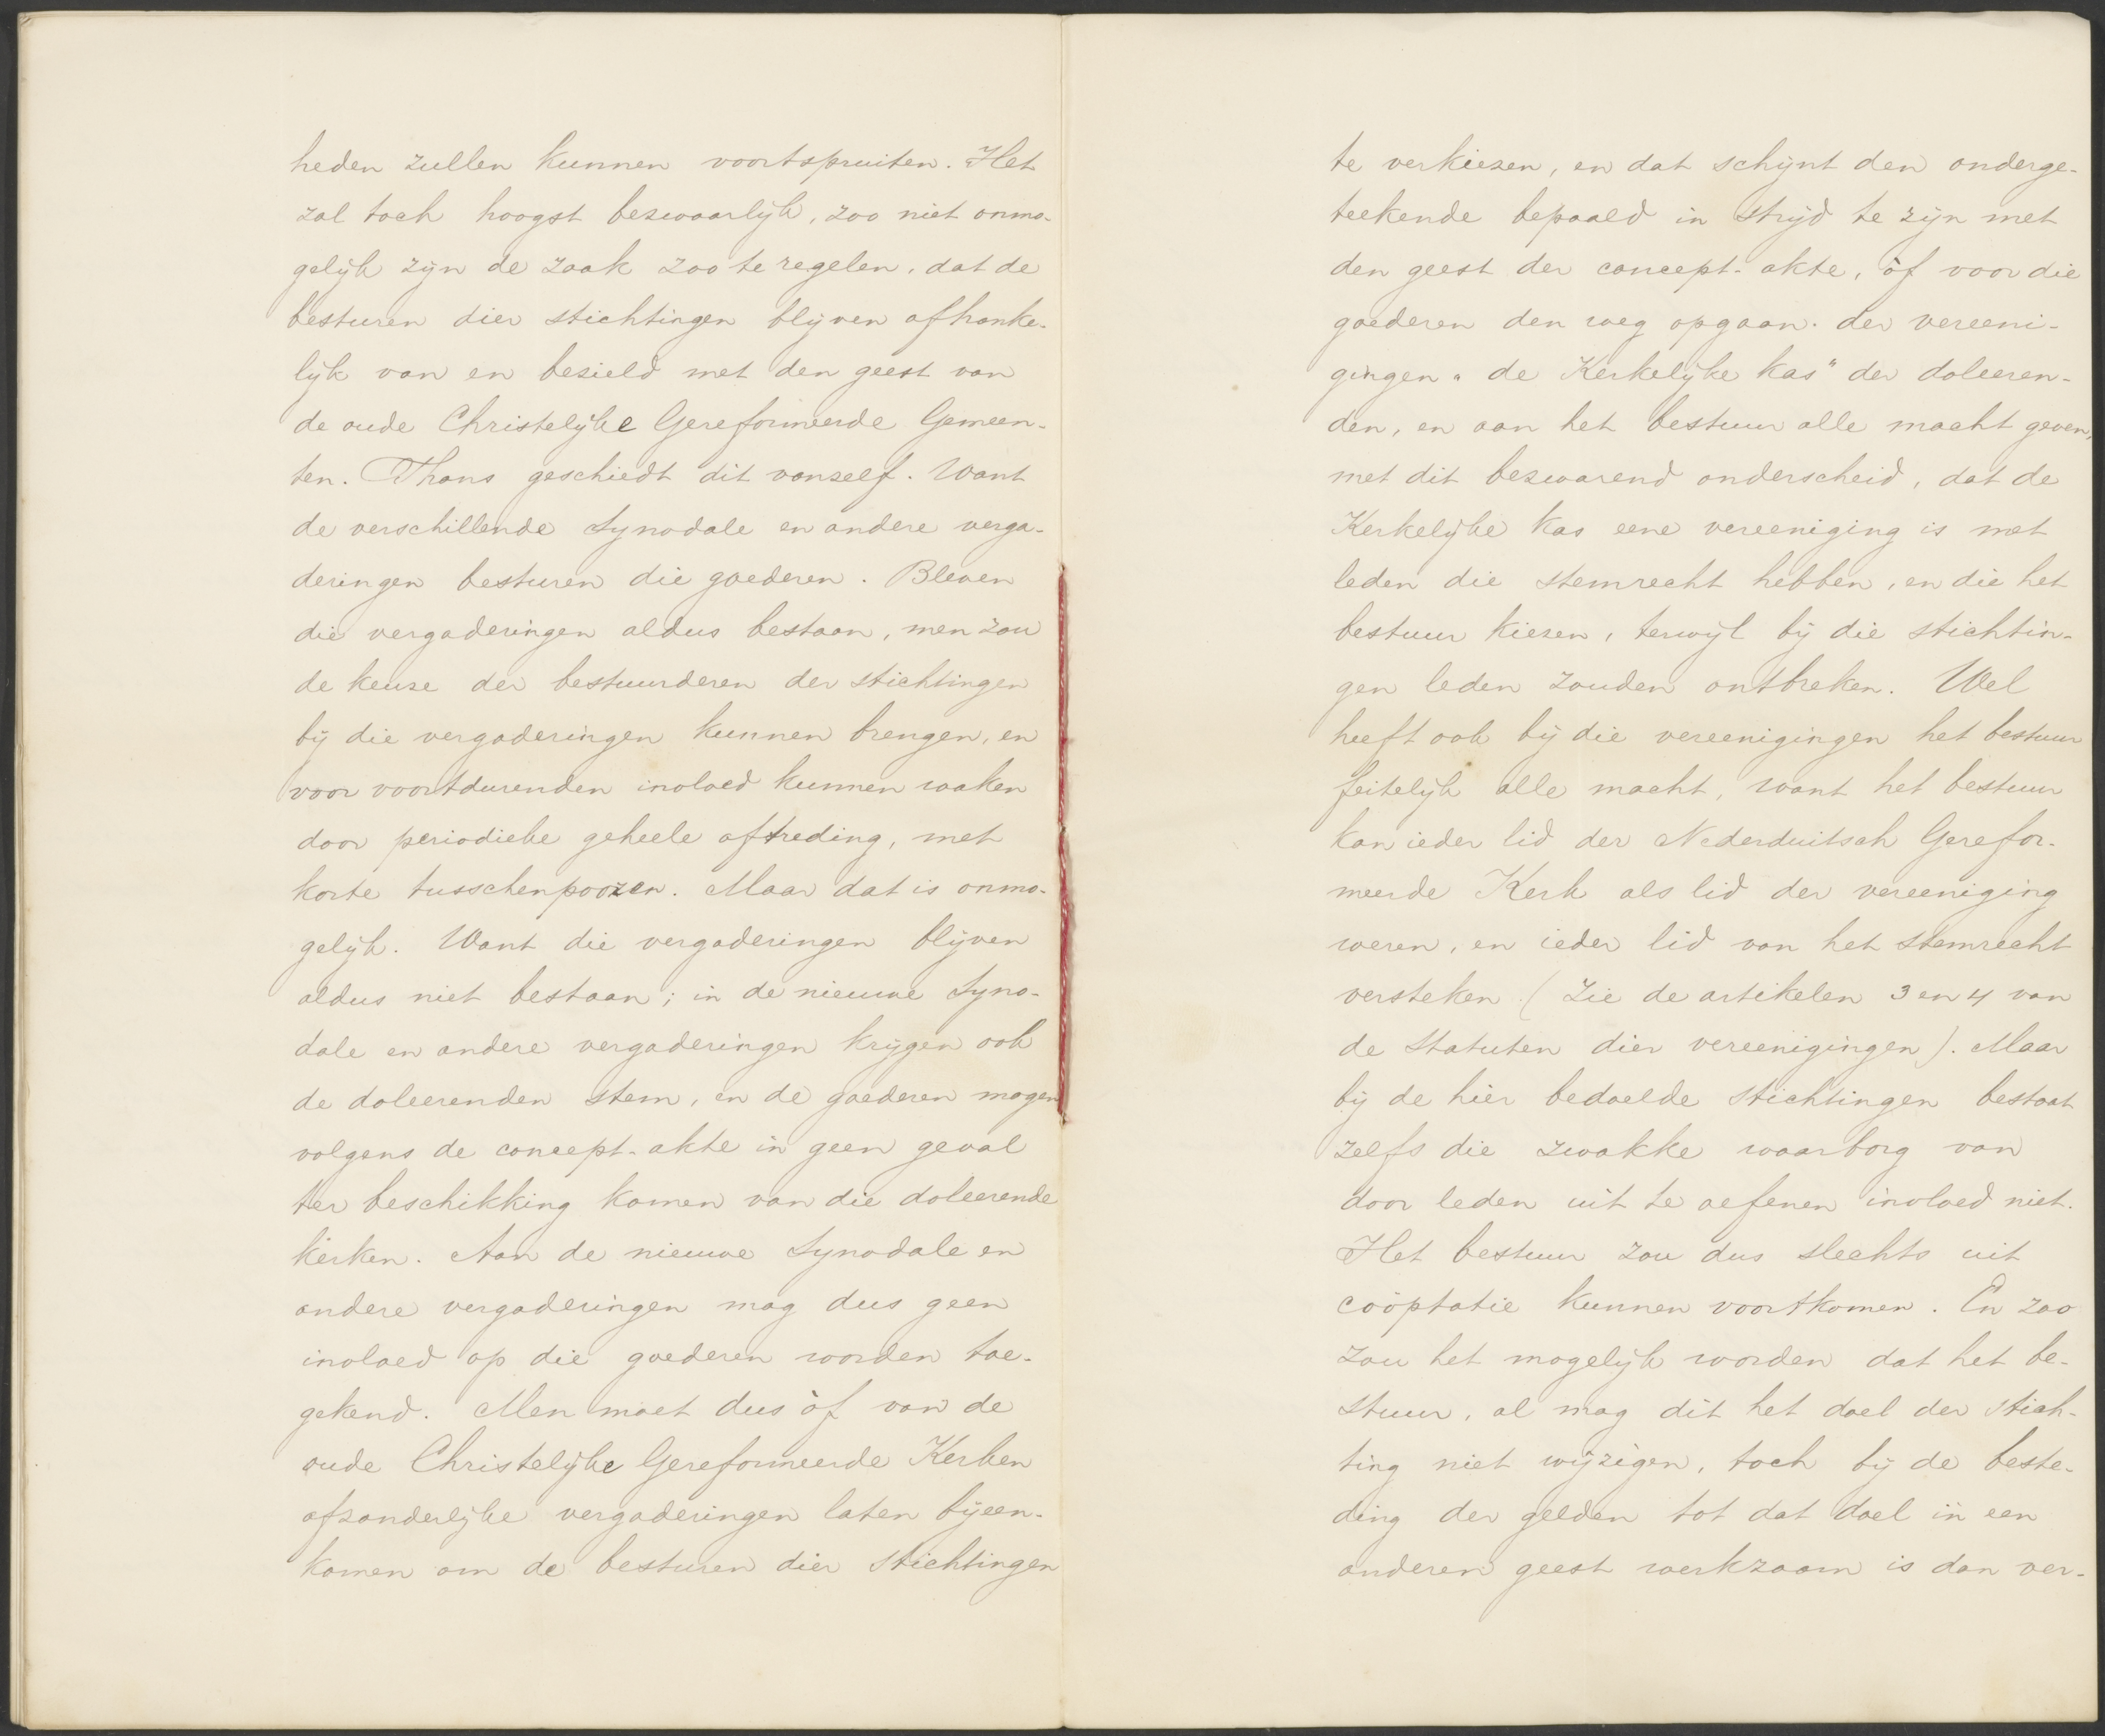 heden zullen kunnen voortspruiten. Het
zal toch hoogst bezwaarlijk, zoo niet onmo-
gelijk zijn de zaak zoo te regelen, dat de
besturen dier stichtingen blijven afhanke-
lijk van en bezield met den geest van
de oude Christelijke Gereformeerde Gemeen-
ten. Thans geschiedt dit vanzelf. Want
de verschillende Synodale en andere verga-
deringen besturen die goederen. Bleven
die vergaderingen aldus bestaan, men zou
de keuze der bestuurderen der stichtingen
bij die vergaderingen kunnen brengen, en
voor voortdurenden invloed kunnen waken
door periodieke geheele aftreding, met
korte tusschenpoozen. Maar dat is onmo-
gelijk. Want die vergaderingen blijven
aldus niet bestaan; in de nieuwe Syno-
dale en andere vergaderingen krijgen ook
de doleerenden stem, en de goederen mogen
volgens de concept-akte in geen geval
ter beschikking komen van die doleerende
kerken. Aan de nieuwe Synodale en
andere vergaderingen mag dus geen
invloed op die goederen worden toe-
gekend. Men moet dus òf van de
oude Christelijke Gereformeerde Kerken
afzonderlijke vergaderingen laten bijeen-
komen om de besturen dier stichtingen
te verkiezen, en dat schijnt den onderge-
teekende bepaald in strijd te zijn met
den geest der concept-akte, òf voor die
goederen den weg opgaan der vereeni-
gingen "de Kerkelijke kas" der doleeren-
den, en aan het bestuur alle macht geven,
met dit bezwarend onderscheid, dat de
Kerkelijke kas eene vereeniging is met
leden die stemrecht hebben, en die het
bestuur kiezen, terwijl bij die stichtin-
gen leden zouden ontbreken. Wel
heeft ook bij die vereenigingen het bestuur
feitelijk alle macht, want het bestuur
kan ieder lid der Nederduitsch Gerefor-
meerde Kerk als lid der vereeniging
weren, en ieder lid van het stemrecht
versteken (zie de artikelen 3 en 4 van
de Statuten dier vereenigingen). Maar
bij de hier bedoelde stichtingen bestaat
zelfs die zwakke waarborg van
door leden uit te oefenen invloed niet.
Het bestuur zou dus slechts uit
coöptatie kunnen voortkomen. En zoo
zou het mogelijk worden dat het be-
stuur, al mag dit het doel der stich-
ting niet wijzigen, toch bij de beste-
ding der gelden tot dat doel in een
anderen geest werkzaam is dan ver-